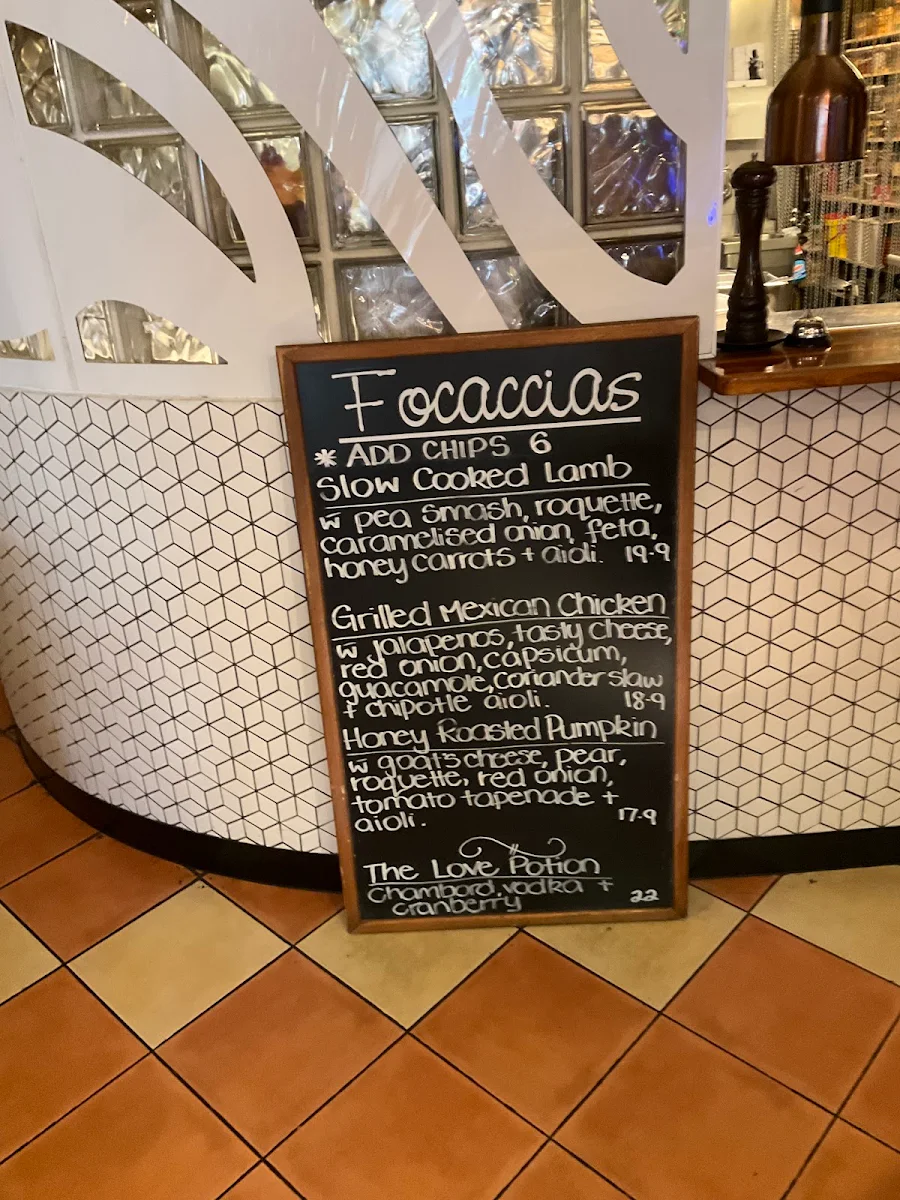 Focaccias
* ADD CHIPS 6
Slow Cooked Lamb
w pea smash, roquette,
caramelised onion, feta,
honey carrots + aioli. 19.9
Grilled Mexican Chicken
w jalapenos, tasty cheese,
red onion, capsicum,
guacamole, coriander slaw
+ chipotle aioli. 18.9
Honey Roasted Pumpkin
w goat's cheese, pear,
roquette, red onion,
tomato tapenade +
aioli. 17.9
The Love Potion
Chambord, vodka +
cranberry 22